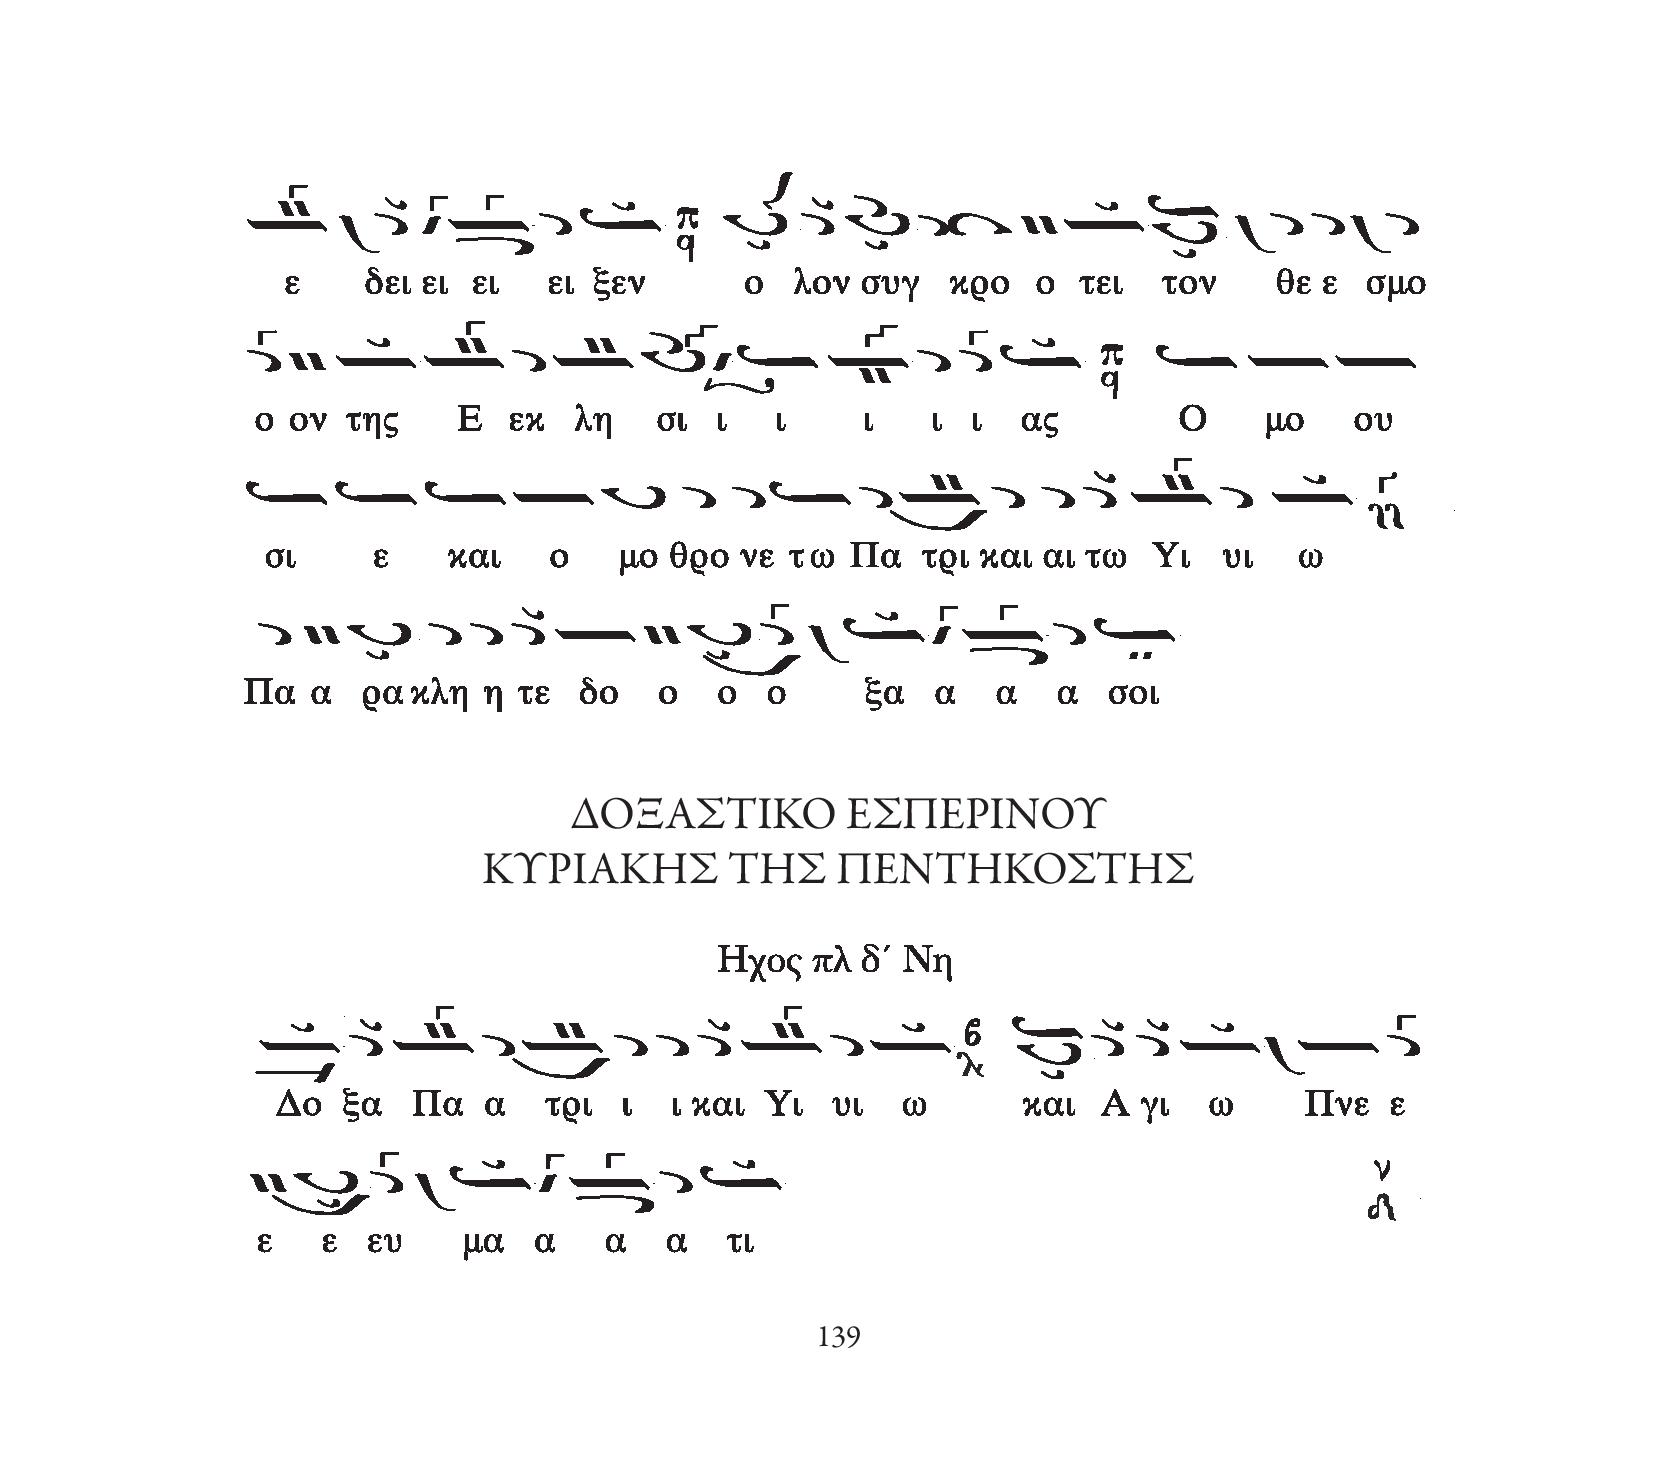 ε δει ει ει ει ξεν π q ο λον συγ κρο ο τει τον θε ε σμο
ο ον της Ε εκ λη σι ι ι ι ι ι ας π q Ο μο ου
σι ε και ο μο θρο νε τω Πα τρι και αι τω Υι υι ω
Πα α ρα κλη η τε δο ο ο ο ξα α α α σοι
ΔΟΞΑΣΤΙΚΟ ΕΣΠΕΡΙΝΟΥ
ΚΥΡΙΑΚΗΣ ΤΗΣ ΠΕΝΤΗΚΟΣΤΗΣ
Ηχος πλ δ´ Νη
Δο ξα Πα α τρι ι ι και Υι υι ω και Α γι ω Πνε ε
ε ε ευ μα α α α τι
139